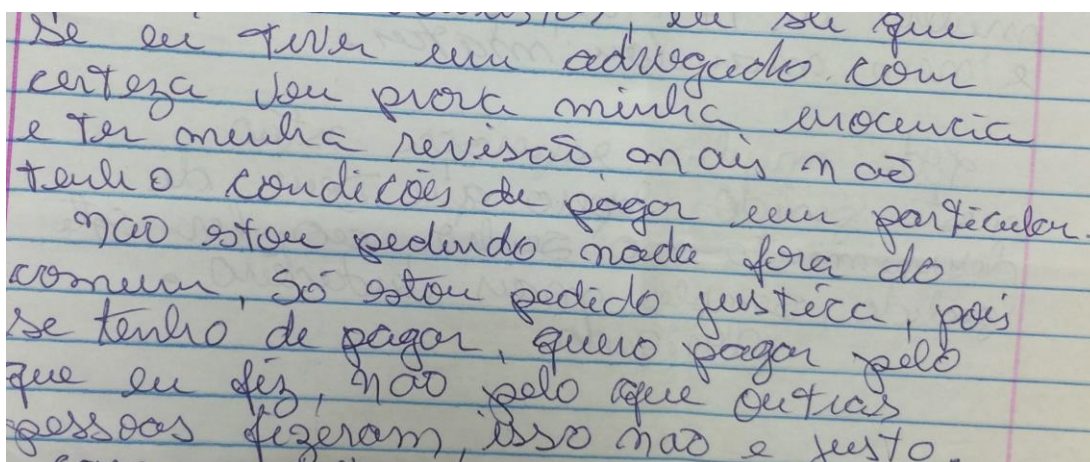 eu sei que
Se eu tiver um advogado com
certeza vou prova minha inocencia
e ter minha revisão mais não
tenho condicões de pagar um particular.
não estou pedindo nada fora do
comum, só estou pedido justica, pois
se tenho de pagar, quero pagar pelo
que eu fiz, não pelo que outras
pessoas fizeram, isso não e justo.